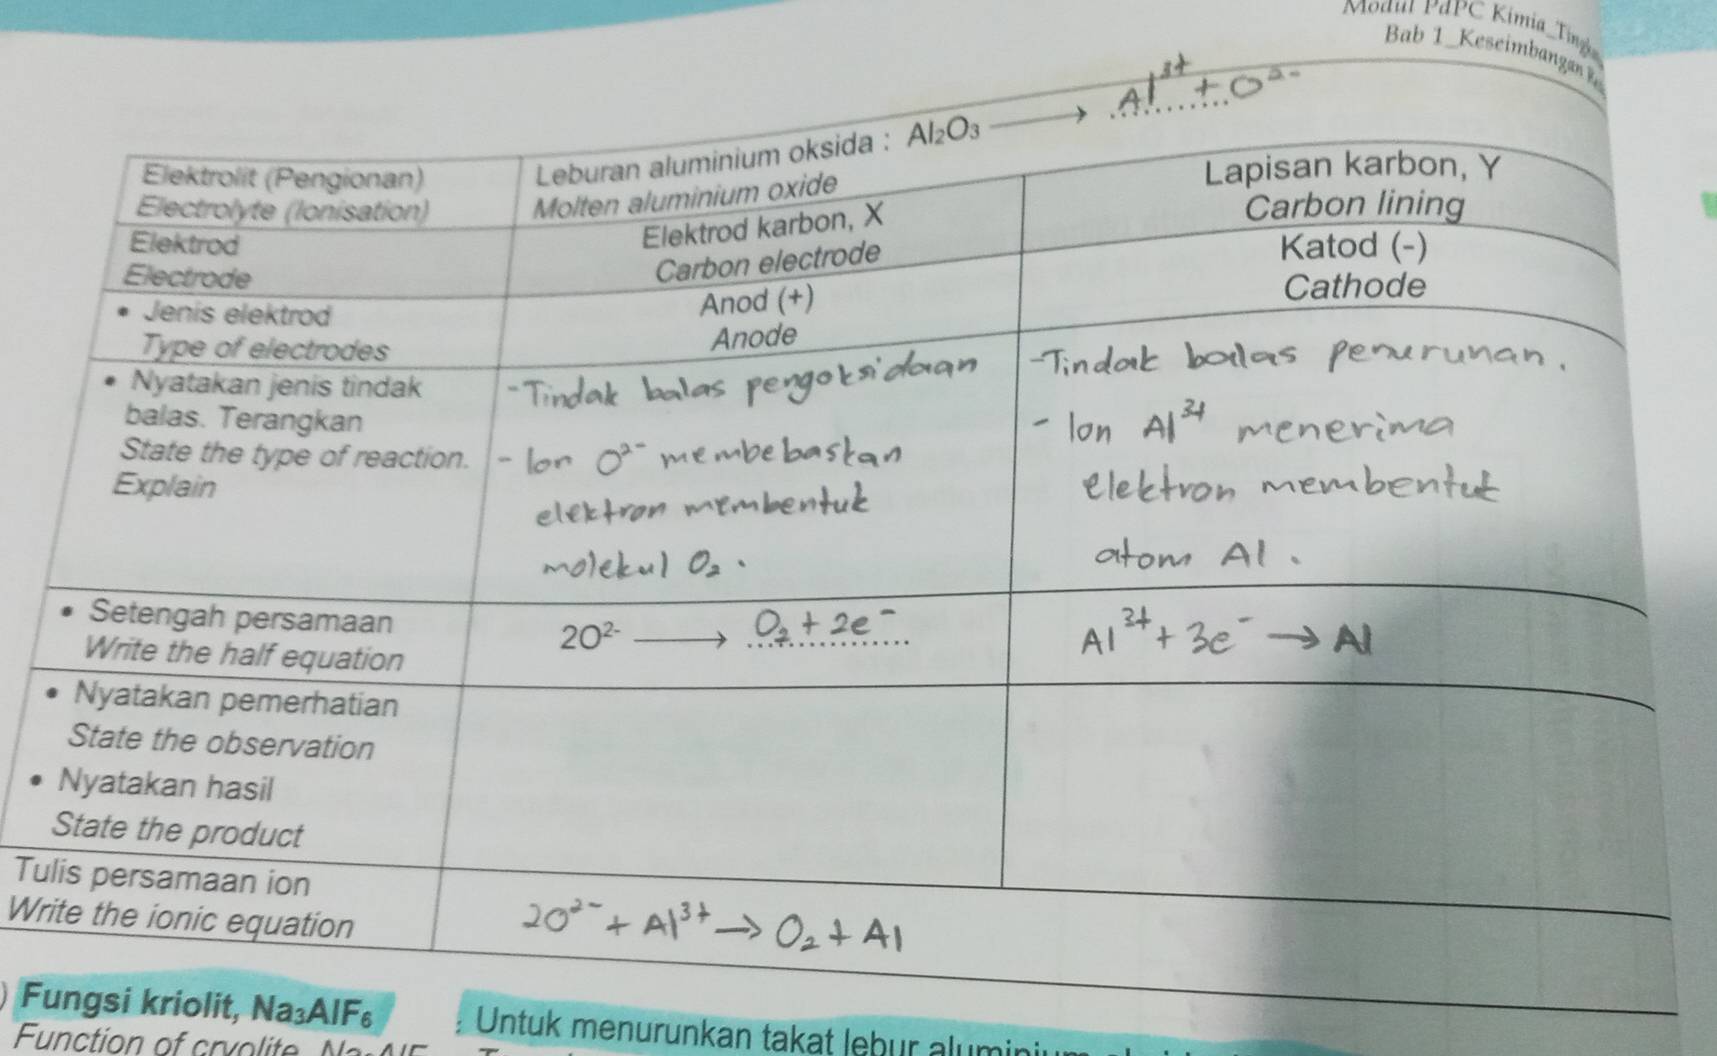 Modul PdPC Kimia_
Bab 1_Keseimbangan
Elektrolit (Pengionan)
Electrolyte (Ionisation)
Leburan aluminium oksida : Al₂O₃ ⟶ Al³⁺ + O²⁻
Molten aluminium oxide
Elektrod
Electrode
Elektrod karbon, X
Carbon electrode
Lapisan karbon, Y
Carbon lining
• Jenis elektrod
Type of electrodes
Anod (+)
Anode
Katod (-)
Cathode
• Nyatakan jenis tindak
balas. Terangkan
State the type of reaction.
Explain
- Tindak balas pengoksidaan
- Ion O²⁻ membebaskan
elektron membentuk
molekul O₂.
- Tindak balas penurunan.
- Ion Al³⁺ menerima
elektron membentuk
atom Al.
• Setengah persamaan
Write the half equation
2O²⁻ ⟶ O₂ + 2e⁻
Al³⁺ + 3e⁻ → Al
• Nyatakan pemerhatian
State the observation
• Nyatakan hasil
State the product
Tulis persamaan ion
Write the ionic equation
2O²⁻ + Al³⁺ → O₂ + Al
) Fungsi kriolit, Na₃AlF₆ : Untuk menurunkan takat lebur
Function of cryolite